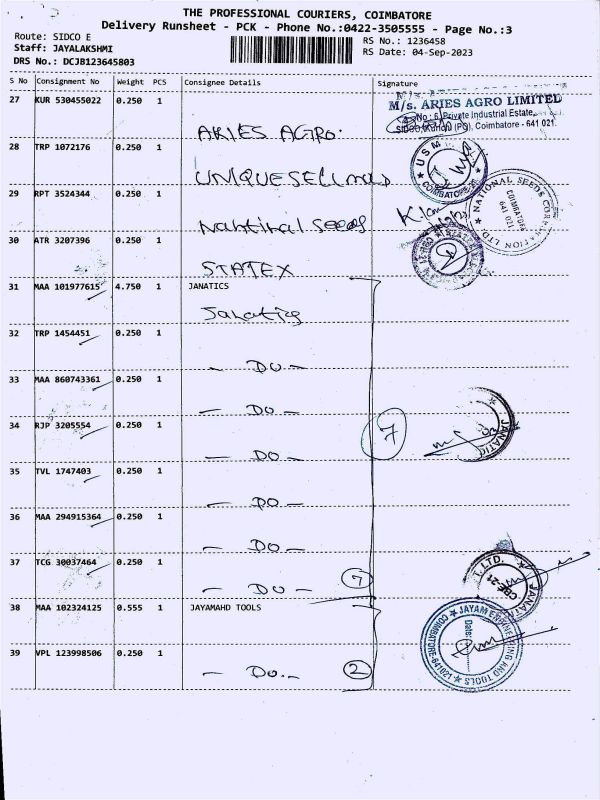 THE PROFESSIONAL COURIERS, COIMBATORE
Delivery Runsheet - PCK - Phone No.:0422-3505555 - Page No.:3
Route: SIDCO E
Staff: JAYALAKSHMI
DRS No.: DCJB123645803
RS No.: 1236458
RS Date: 04-Sep-2023
S No Consignment No Weight PCS Consignee Details Signature
27 KUR 530455022 0.250 1
ARIES AGRO.
M/s. ARIES AGRO LIMITED
No : 6, Private Industrial Estate,
SIDCO, Kurichi (PO), Coimbatore - 641 021.
28 TRP 1072176 0.250 1
UNIQUESELL
USM
COIMBATORE
29 RPT 3524344 0.250 1
National seeds
NATIONAL SEEDS CORPORATION LTD.
COIMBATORE
641 021
30 ATR 3207396 0.250 1
STATEX
31 MAA 101977615 4.750 1 JANATICS
Janatics
32 TRP 1454451 0.250 1
— DO —
33 MAA 860743361 0.250 1
— DO —
34 RJP 3205554 0.250 1
— DO —
7
JANATIC
35 TVL 1747403 0.250 1
— DO —
36 MAA 294915364 0.250 1
— DO —
37 TCG 30037464 0.250 1
— DO —
7
T. LTD.
CBE-21
JANAT
38 MAA 102324125 0.555 1 JAYAMAHD TOOLS
JAYAM ENGINEERING AND TOOLS
COIMBATORE-641021
Date:
39 VPL 123998506 0.250 1
— DO. —
2